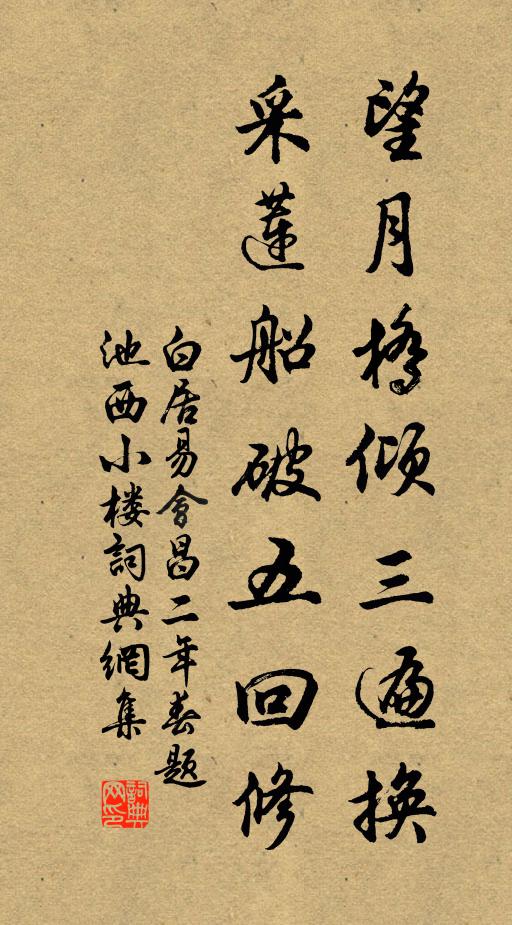 望月橋傾三遍換
采蓮船破五回修
白居易會昌二年春題
池西小樓詞典網集
詞典网印